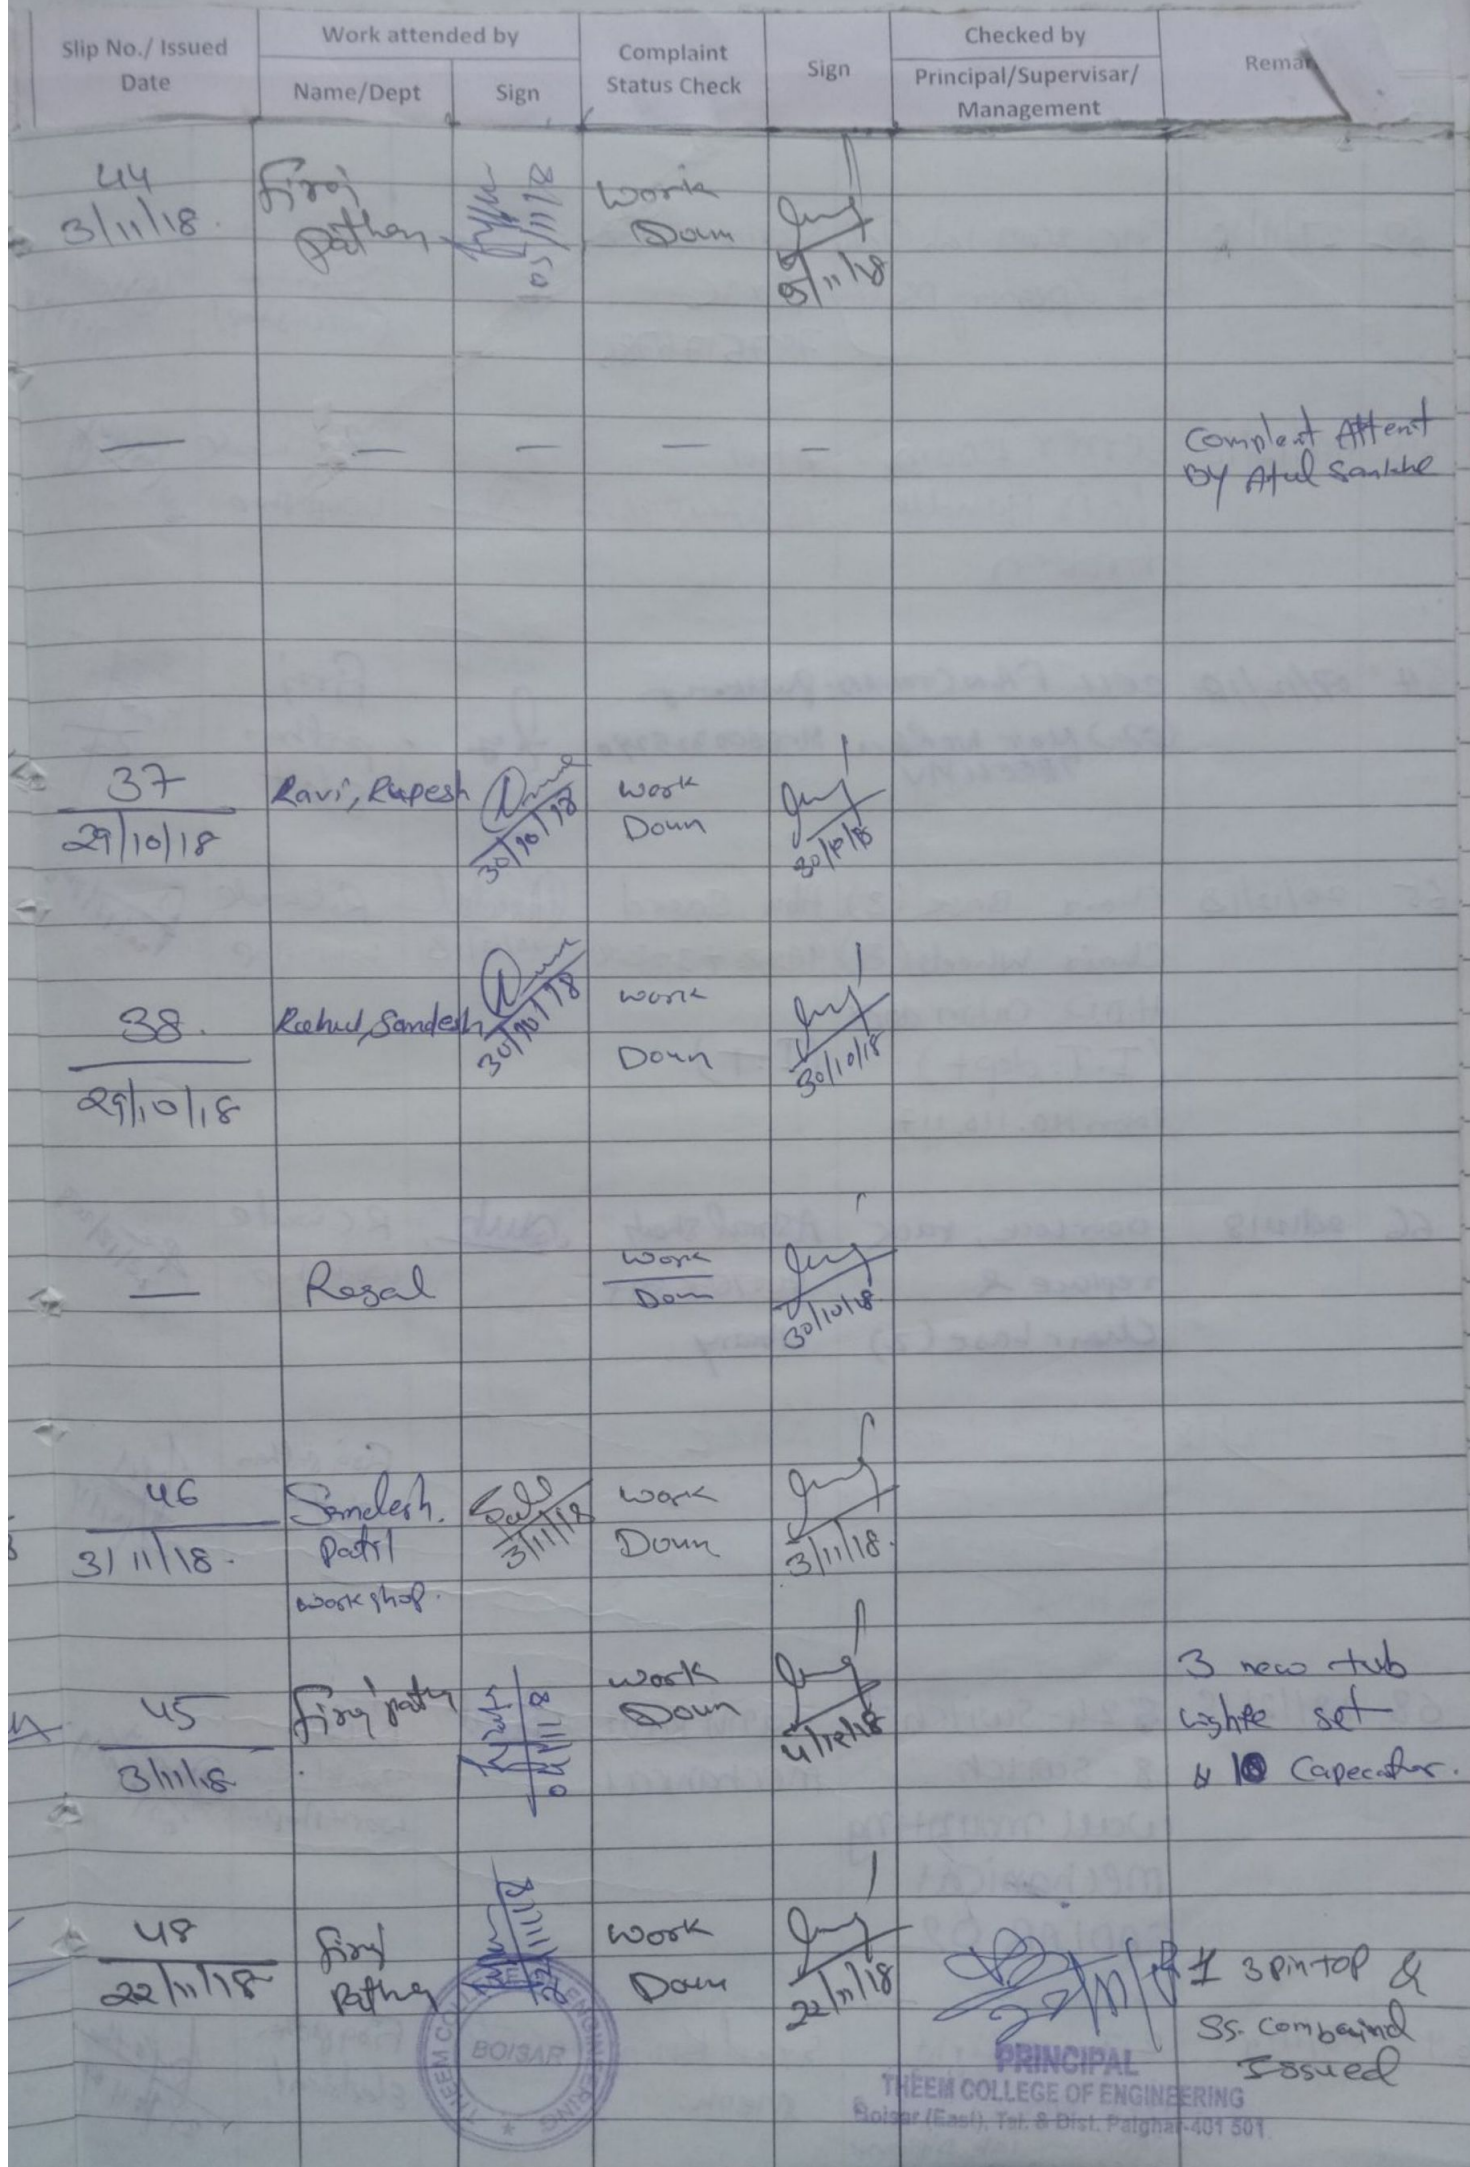 Slip No./ Issued Date
Work attended by
Name/Dept
Sign
Complaint Status Check
Sign
Checked by
Principal/Supervisar/ Management
Remar
44
3/11/18.
Firoj
Pathan
05/11/18
Work
Doun
5/11/18
— — — — —
Complent Attent
BY Atul Sankhe
37
29/10/18
Ravi, Rupesh
30/10/18
Work
Doun
30/10/18
38.
29/10/18
Rahul, Sandesh
30/10/18
Work
Doun
30/10/18
—
Rezal
Work
Doun
30/10/18
46
3/11/18.
Sandesh.
Patil
workshop.
3/11/18
Work
Doun
3/11/18.
45
3/11/18
Firoj
Work
Doun
3 new tub
set
10 Capecator.
48
22/11/18
Firoj
22/11/18
Work
Doun
22/11/18
1 3 pin top &
SS. combaind
Issued
THEEM COLLEGE OF ENGINEERING
BOISAR
PRINCIPAL
THEEM COLLEGE OF ENGINEERING
Boisar (East), Tal. & Dist. Palghar-401 501.